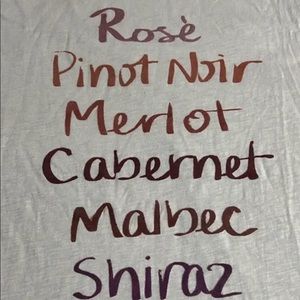 Rosè
Pinot Noir
Merlot
Cabernet
Malbec
Shiraz